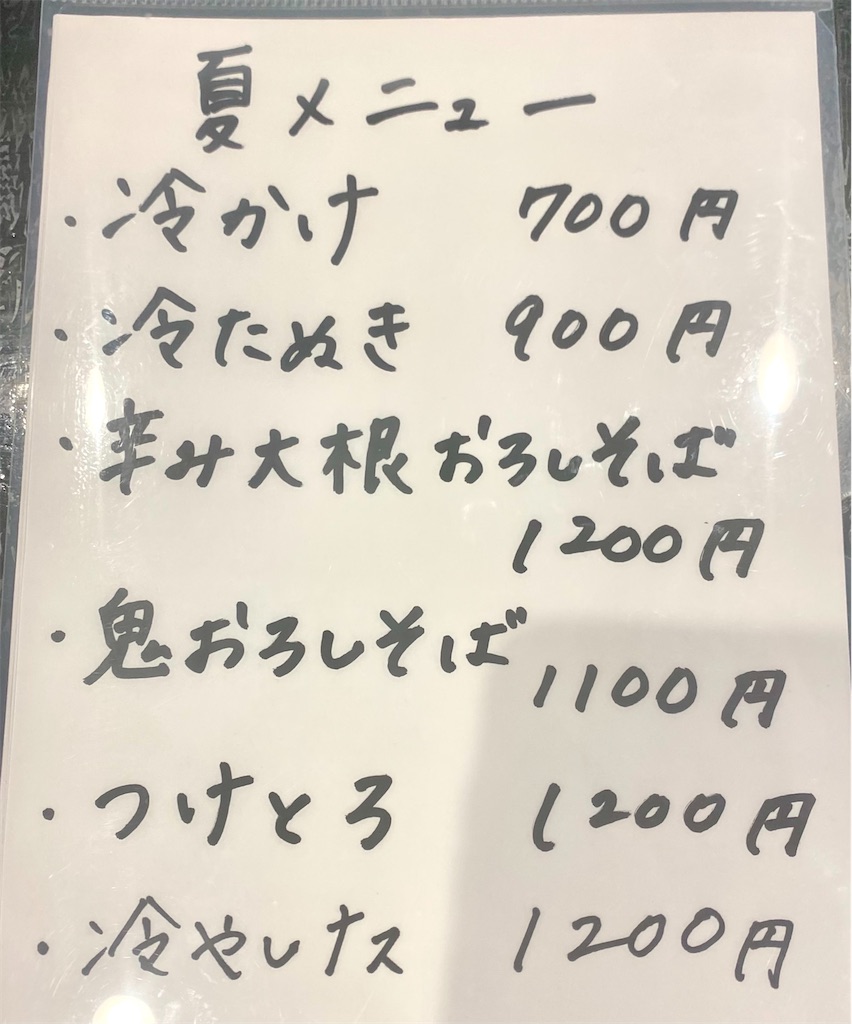 夏メニュー
・冷かけ 700円
・冷たぬき 900円
・辛み大根おろしそば
1200円
・鬼おろしそば
1100円
・つけとろ 1200円
・冷やしナス 1200円